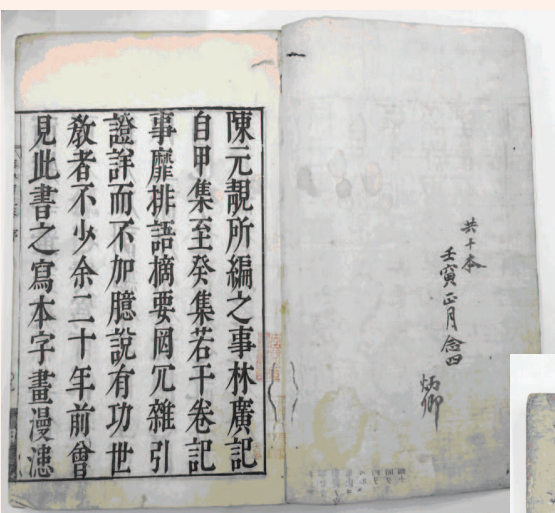 共十本
壬寅正月念四
炳卿
陳元靚所編之事林廣記
自甲集至癸集若干卷記
事靡排語摘要罔冗雜引
證詳而不加臆說有功世
敎者不少余二十年前曾
見此書之寫本字畫漫漶